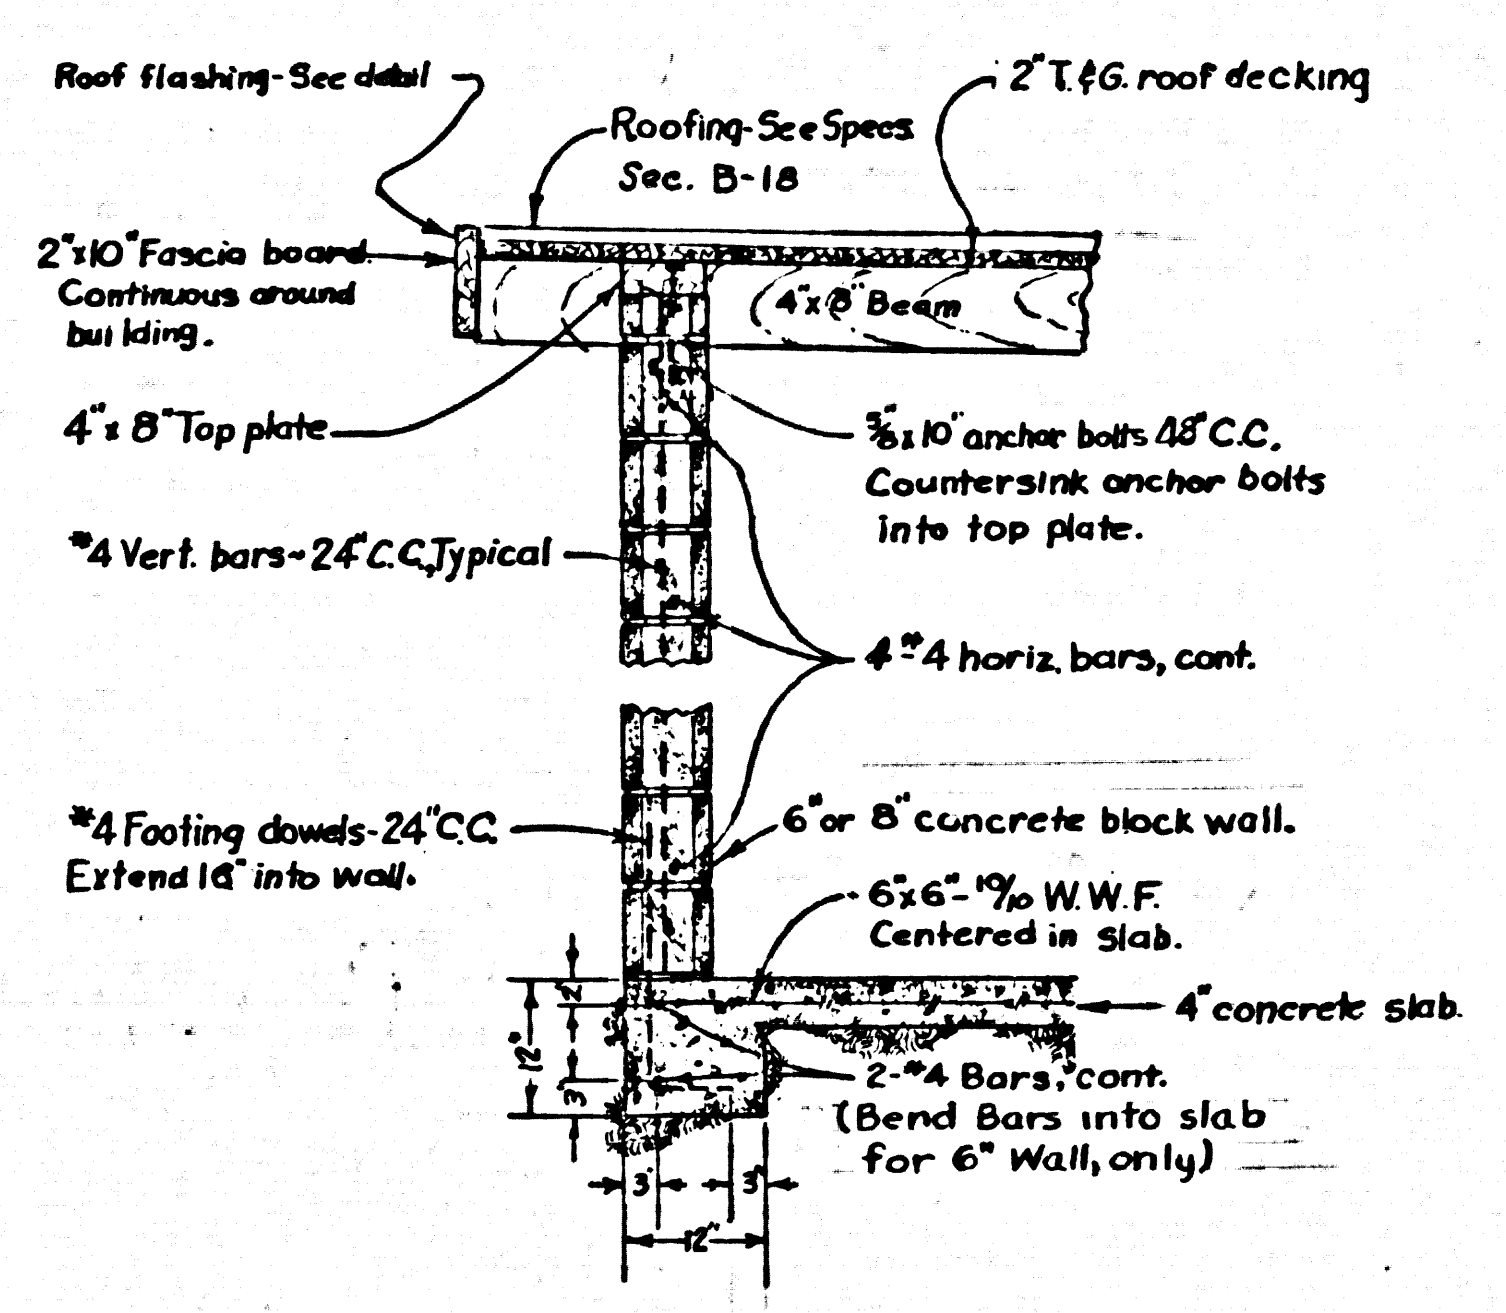 Roof flashing-See detail
2" T.&G. roof decking
Roofing-See Specs
Sec. B-18
2"x10" Fascia board.
Continuous around
building.
4"x8" Beam
4"x 8" Top plate
5/8"x10" anchor bolts 48" C.C.
Countersink anchor bolts
into top plate.
#4 Vert. bars-24" C.C., Typical
4-#4 horiz. bars, cont.
#4 Footing dowels-24" C.C.
Extend 16" into wall.
6" or 8" concrete block wall.
6"x6"-10/10 W.W.F.
Centered in slab.
2"
12"
3"
4" concrete slab.
2-#4 Bars, cont.
(Bend Bars into slab
for 6" Wall, only)
3"
3"
12"